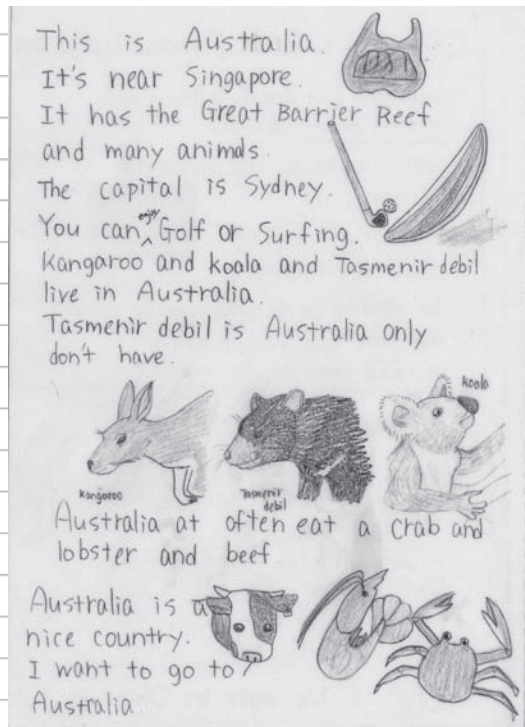 This is Australia.
It's near Singapore.
It has the Great Barrier Reef
and many animals.
The capital is Sydney.
You can enjoy Golf or Surfing.
Kangaroo and koala and Tasmenir debil
live in Australia.
Tasmenir debil is Australia only
don't have.
koala
kangaroo
Tasmenir
debil
Australia at often eat a crab and
lobster and beef
Australia is a
nice country.
I want to go to
Australia.